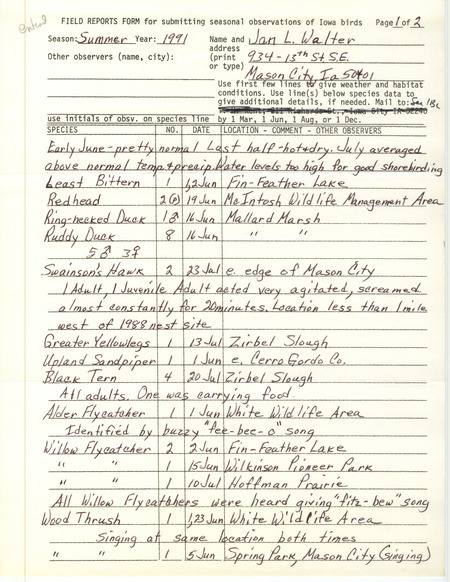 Central
FIELD REPORTS FORM for submitting seasonal observations of Iowa birds Page 1 of 2
Season: Summer Year: 1991 Name and Jan L. Walter
Other observers (name, city): address
(print 934-13th St S.E.
or type) Mason City, Ia 50401
Use first few lines to give weather and habitat
conditions. Use line(s) below species data to
give additional details, if needed. Mail to:
Iowa City IA 52240
use initials of obsv. on species line by 1 Mar, 1 Jun, 1 Aug, or 1 Dec.
SPECIES NO. DATE LOCATION - COMMENT - OTHER OBSERVERS
Early June-pretty normal Last half-hot&dry. July averaged
above normal temp.&precip. Water levels too high for good shorebirding
Least Bittern 1 1,2 Jun Fin-Feather Lake
Redhead 2 19 Jun McIntosh Wildlife Management Area
Ring-necked Duck 1♂ 16 Jun Mallard Marsh
Ruddy Duck 8 16 Jun " "
5♂ 3♀
Swainson's Hawk 2 23 Jul e. edge of Mason City
1 Adult, 1 Juvenile Adult acted very agitated, screamed
almost constantly for 20 minutes. Location less than 1 mile
west of 1988 nest site
Greater Yellowlegs 1 13 Jul Zirbel Slough
Upland Sandpiper 1 1 Jun e. Cerro Gordo Co.
Black Tern 4 20 Jul Zirbel Slough
All adults. One was carrying food.
Alder Flycatcher 1 1 Jun White Wildlife Area
Identified by buzzy "fee-bee-o" song
Willow Flycatcher 2 2 Jun Fin-Feather Lake
" " 1 15 Jun Wilkinson Pioneer Park
" " 1 10 Jul Hoffman Prairie
All Willow Flycatchers were heard giving "fitz-bew" song
Wood Thrush 1 1,23 Jun White Wildlife Area
Singing at same location both times
" " 1 5 Jun Spring Park, Mason City (singing)